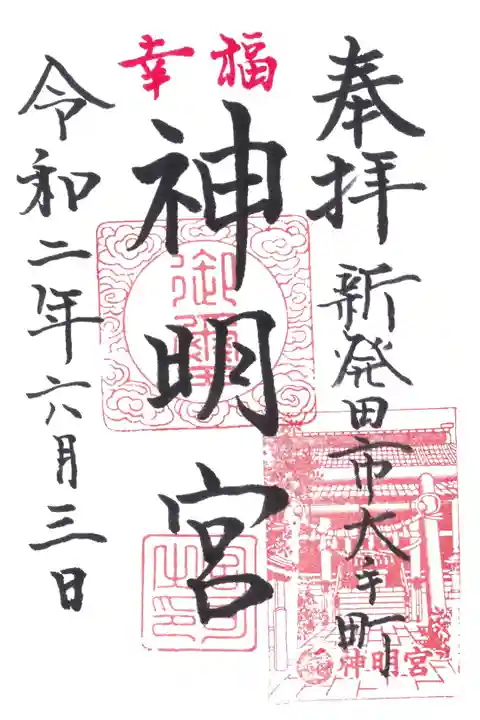 奉拝
新発田市大手町
幸福
神明宮
令和二年六月三日
御璽
神明宮